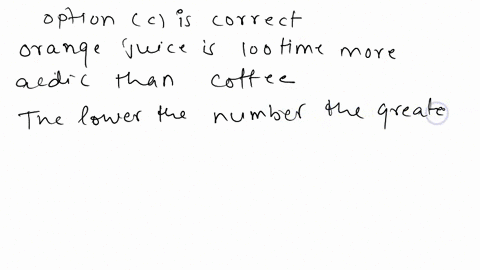 option (c) is correct
orange juice is 100 time more
aedic than coffee
The lower the number the greate